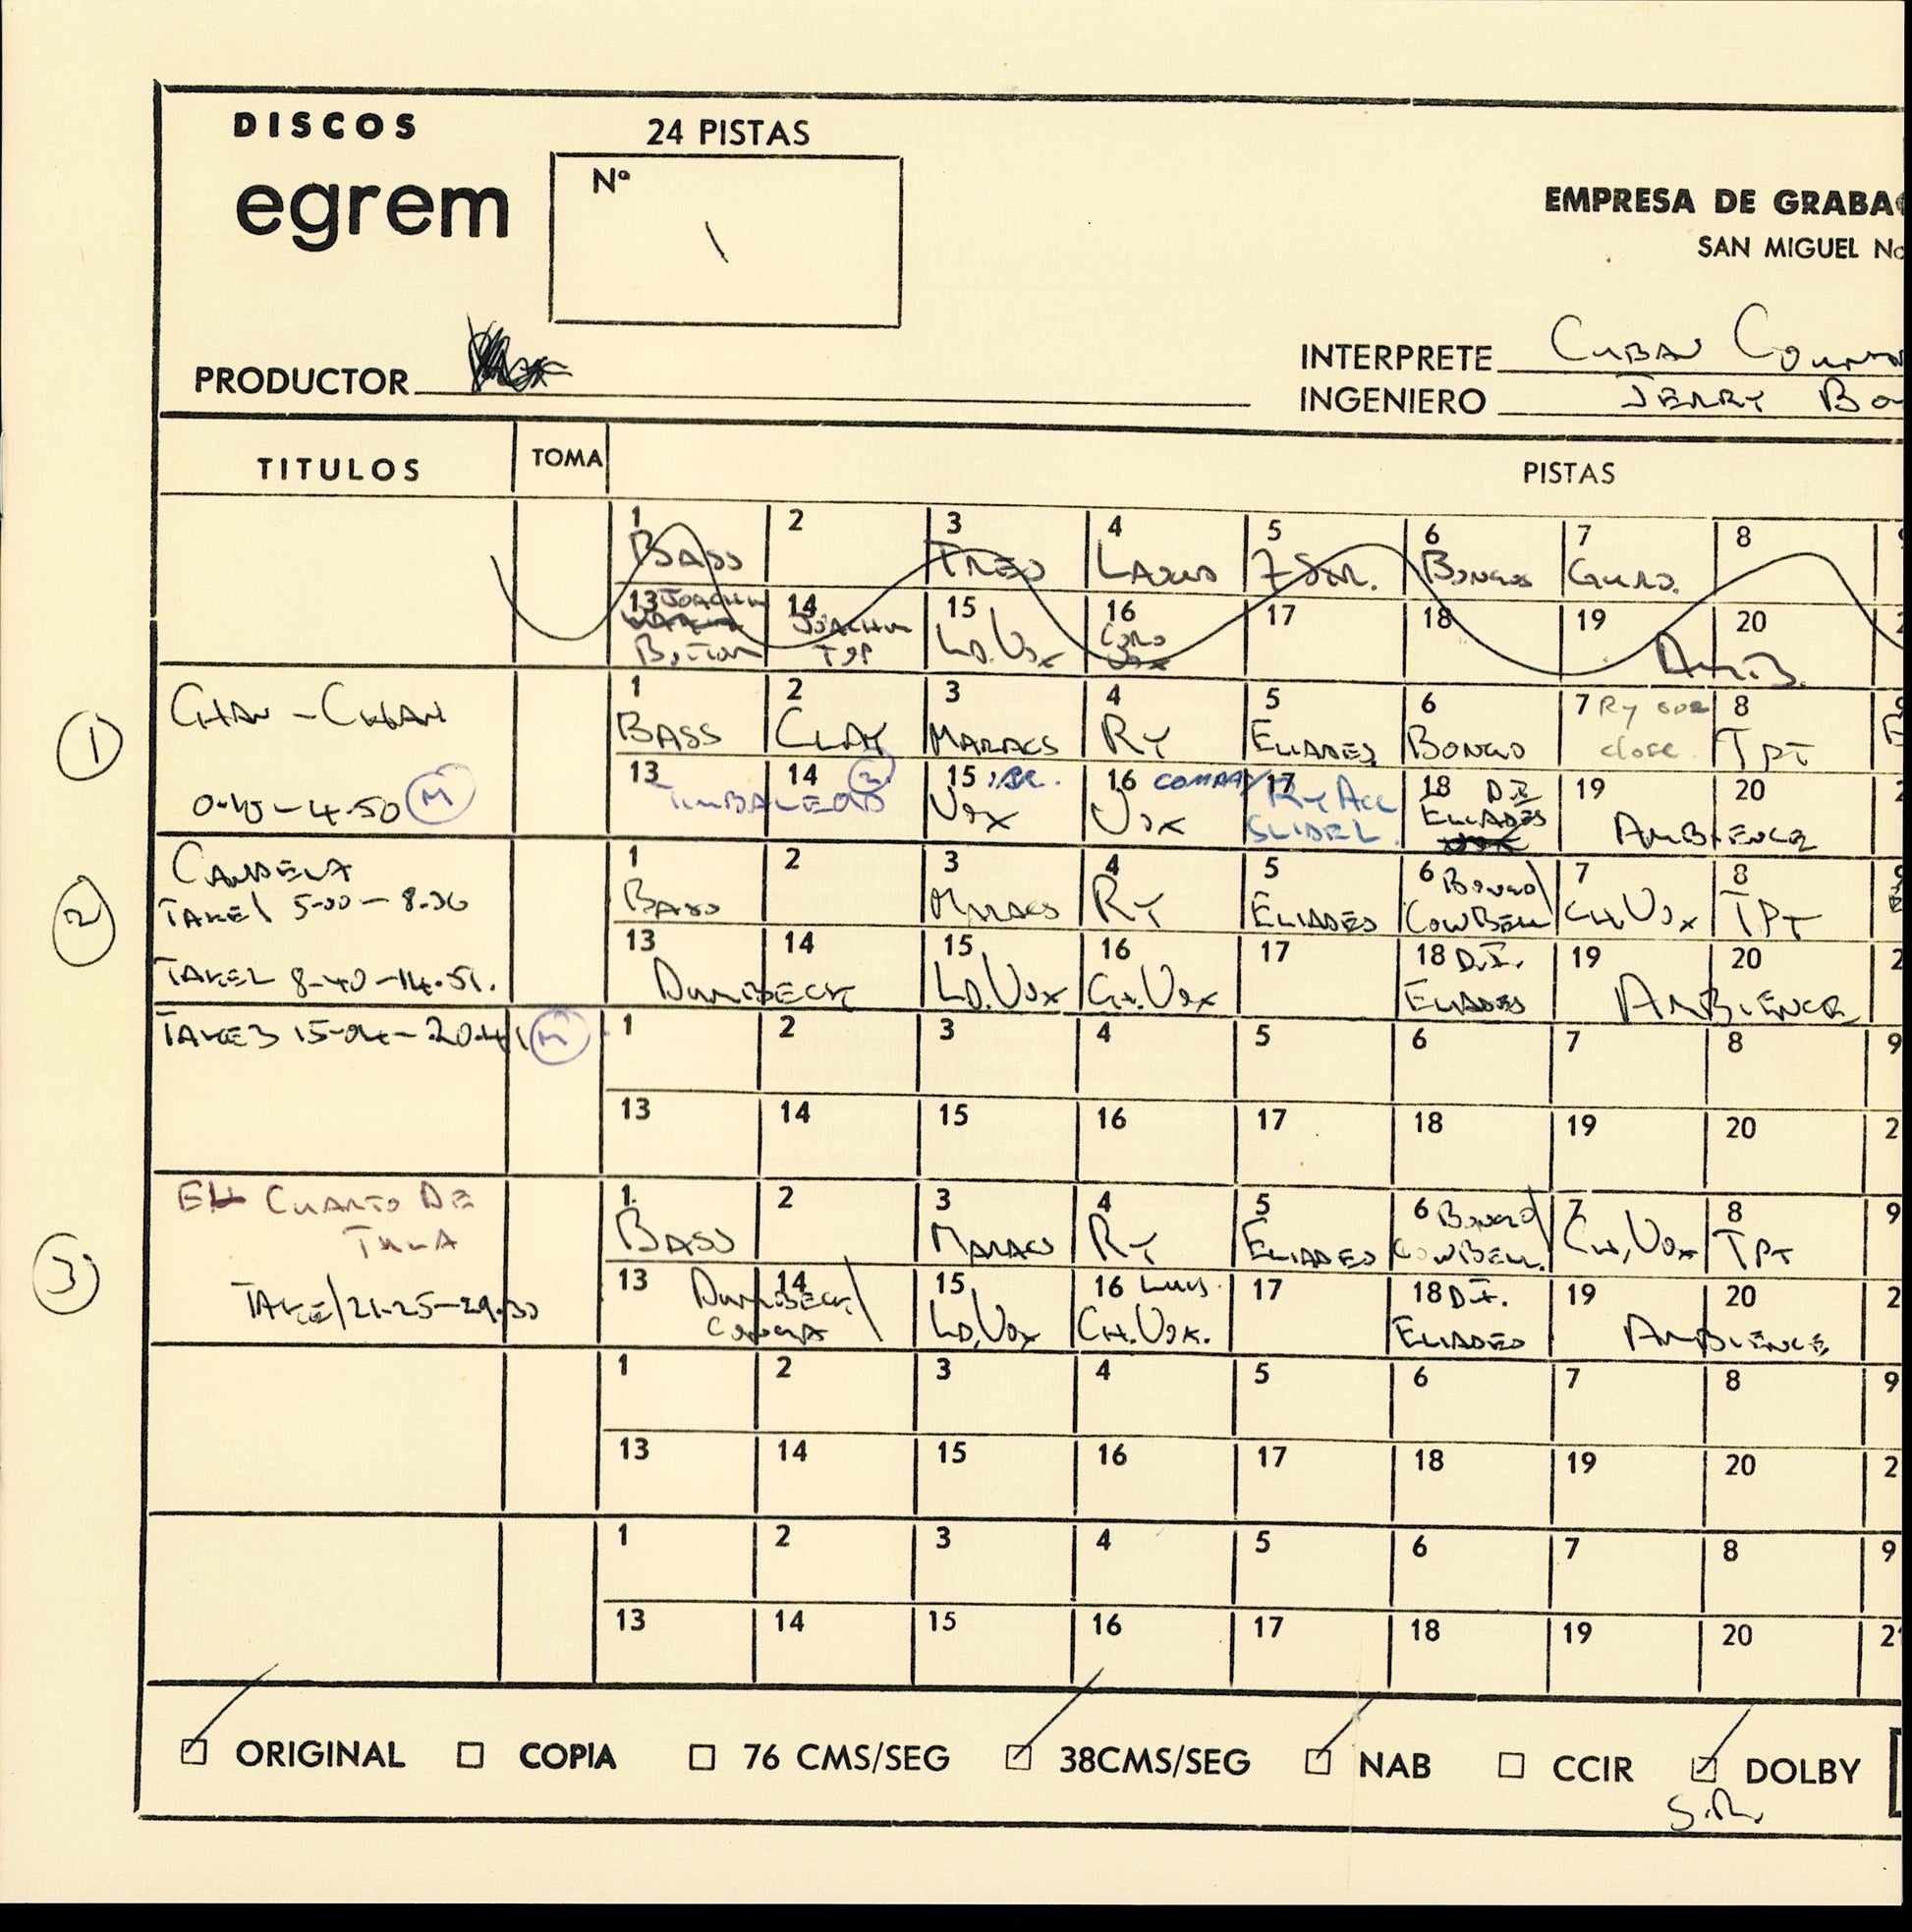 DISCOS
24 PISTAS
egrem
Nº
\
EMPRESA DE GRABA
SAN MIGUEL No
PRODUCTOR
INTERPRETE CUBAN COUN
INGENIERO JERRY BO
TITULOS TOMA PISTAS
1 2 3 4 5 6 7 8
BASS TRES LAOUD 7 STR. BONGOS GUIRO.
13 JOACHIM 14 15 16 17 18 19 20
BOTTOM JOACHIM TOP LD. VOX CORO VOX AMB.
① CHAN - CHAN
1 2 3 4 5 6 7 Ry 8
BASS CLAY MARACS RY ELIADES BONGO close TPT
0.40 - 4.50 Ⓜ
13 14 15 16 COMPAY 17 18 D.I. 19 20
VOX VOX RY ACC SLIDE ELIADES AMBIENCE
② CANDELA
TAKE 1 5-00 - 8.36
1 2 3 4 5 6 BONGO\ 7 8
BASS MARACS RY ELIADES COWBELL CH VOX TPT
TAKE 2 8-40 - 14.51.
13 14 15 16 17 18 D.I. 19 20
DUMBECK LD. VOX CH. VOX ELIADES AMBIENCE
TAKE 3 15-04 - 20.41 Ⓜ
1 2 3 4 5 6 7 8 9
13 14 15 16 17 18 19 20 2
③ EL CUARTO DE
TULA
1 2 3 4 5 6 BONGO\ 7 8 9
BASS MARACS RY ELIADES COWBELL. CH. VOX TPT
TAKE 1 21-25 - 29.30
13 14 15 16 LUIS. 17 18 D.I. 19 20 2
DUMBECK\ CONGA LD. VOX CH. VOX. ELIADES AMBIENCE
1 2 3 4 5 6 7 8 9
13 14 15 16 17 18 19 20 2
1 2 3 4 5 6 7 8 9
13 14 15 16 17 18 19 20 2
ORIGINAL COPIA 76 CMS/SEG 38CMS/SEG NAB CCIR DOLBY
S.R.